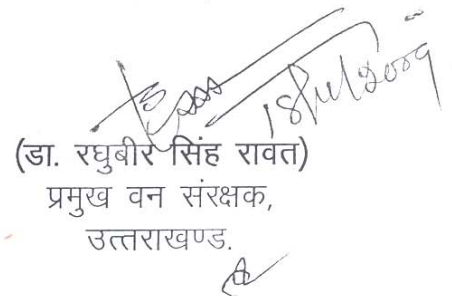 18/11/2009
(डा. रघुबीर सिंह रावत)
प्रमुख वन संरक्षक,
उत्तराखण्ड.